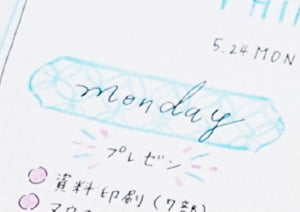 5.24 MON
monday
プレゼン
資料印刷(7部)